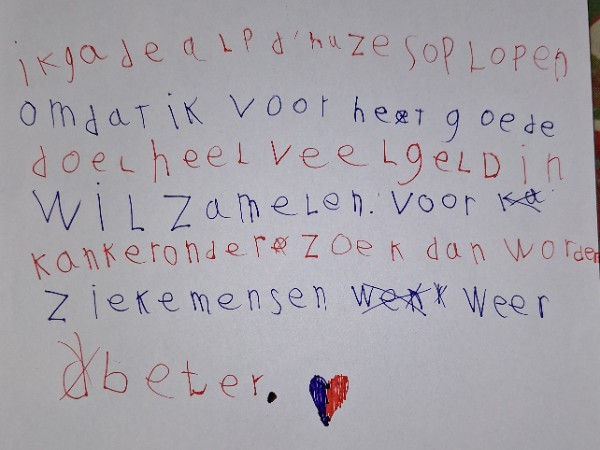 ikga de a LP d'huZe SOP LOPEN
omdat ik voor heet goede
doel heel veel geld in
Wil Zamelen. voor ka
kankeronderzoek dan worden
Ziekemensen weer
beter.